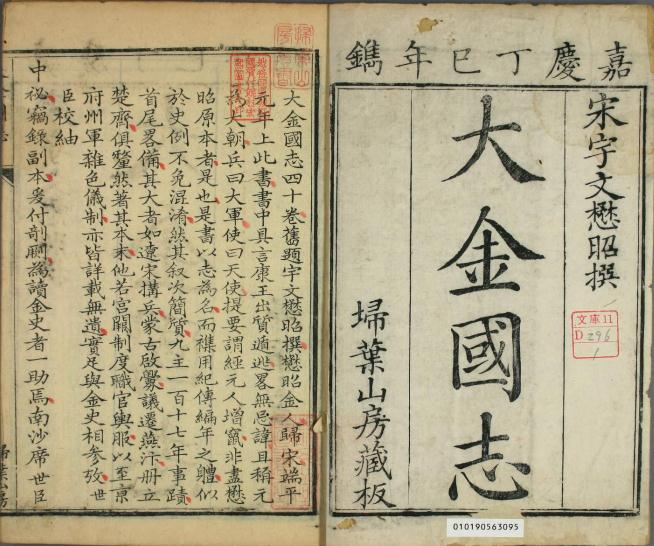 嘉慶丁巳年鐫
宋宇文懋昭撰
大金國志
埽葉山房藏板
文庫11
D296
1
010190563095
大金國志四十卷舊題宇文懋昭撰懋昭金人歸宋端平
元年上此書書中具言康王出質遁逃畧無忌諱且稱元
為大朝兵曰大軍使曰天使提要謂經元人增竄非盡懋
昭原本者是也是書以志為名而襍用紀傳編年之體似
於史例不免混淆然其叙次簡質九主一百十七年事蹟
首尾畧備其大者如遼宋搆兵蒙古啟釁議遷燕汴册立
楚齊俱釐然著其本末他若宮闕制度職官輿服以至京
府州軍雜色儀制亦皆詳載無遺實足與金史相參攷世
臣校紬
中祕竊錄副本爰付剞劂為讀金史者一助焉南沙席世臣